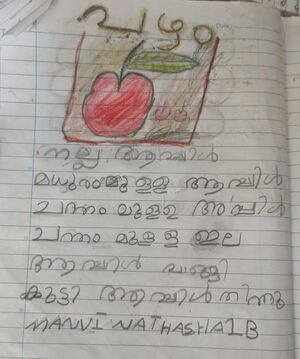 പഴം
നല്ല ആപ്പിൾ
മധുരം മുള്ള ആപ്പിൾ
ചന്തം മുള്ള ആപ്പിൾ
ചന്തം മുള്ള ഇല
ആപ്പിൾ
കുട്ടി ആപ്പിൾ തിന്നു
MANVI NATHASHA 1 B